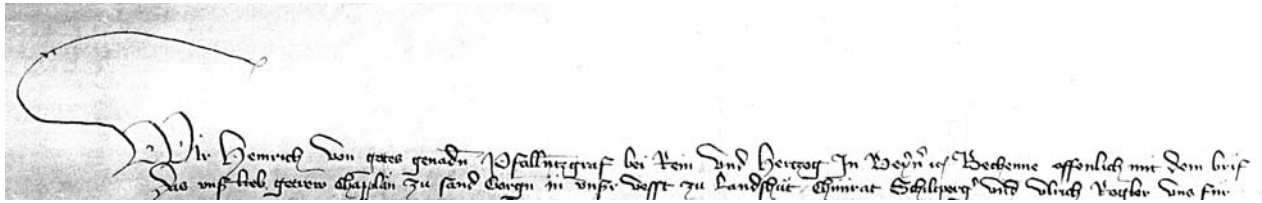 Wir Heinrich von gotes genadn Pfallntzgraf bei Rein vnd Hertzog In Beyrn etc Bechenne offenlich mit dem brif
Das vnser lieb getrew Chapplan zu sand Gorgn in vnser vesst zu Landshut Chunrat Schilperg vnd vlrich Kogler vns für